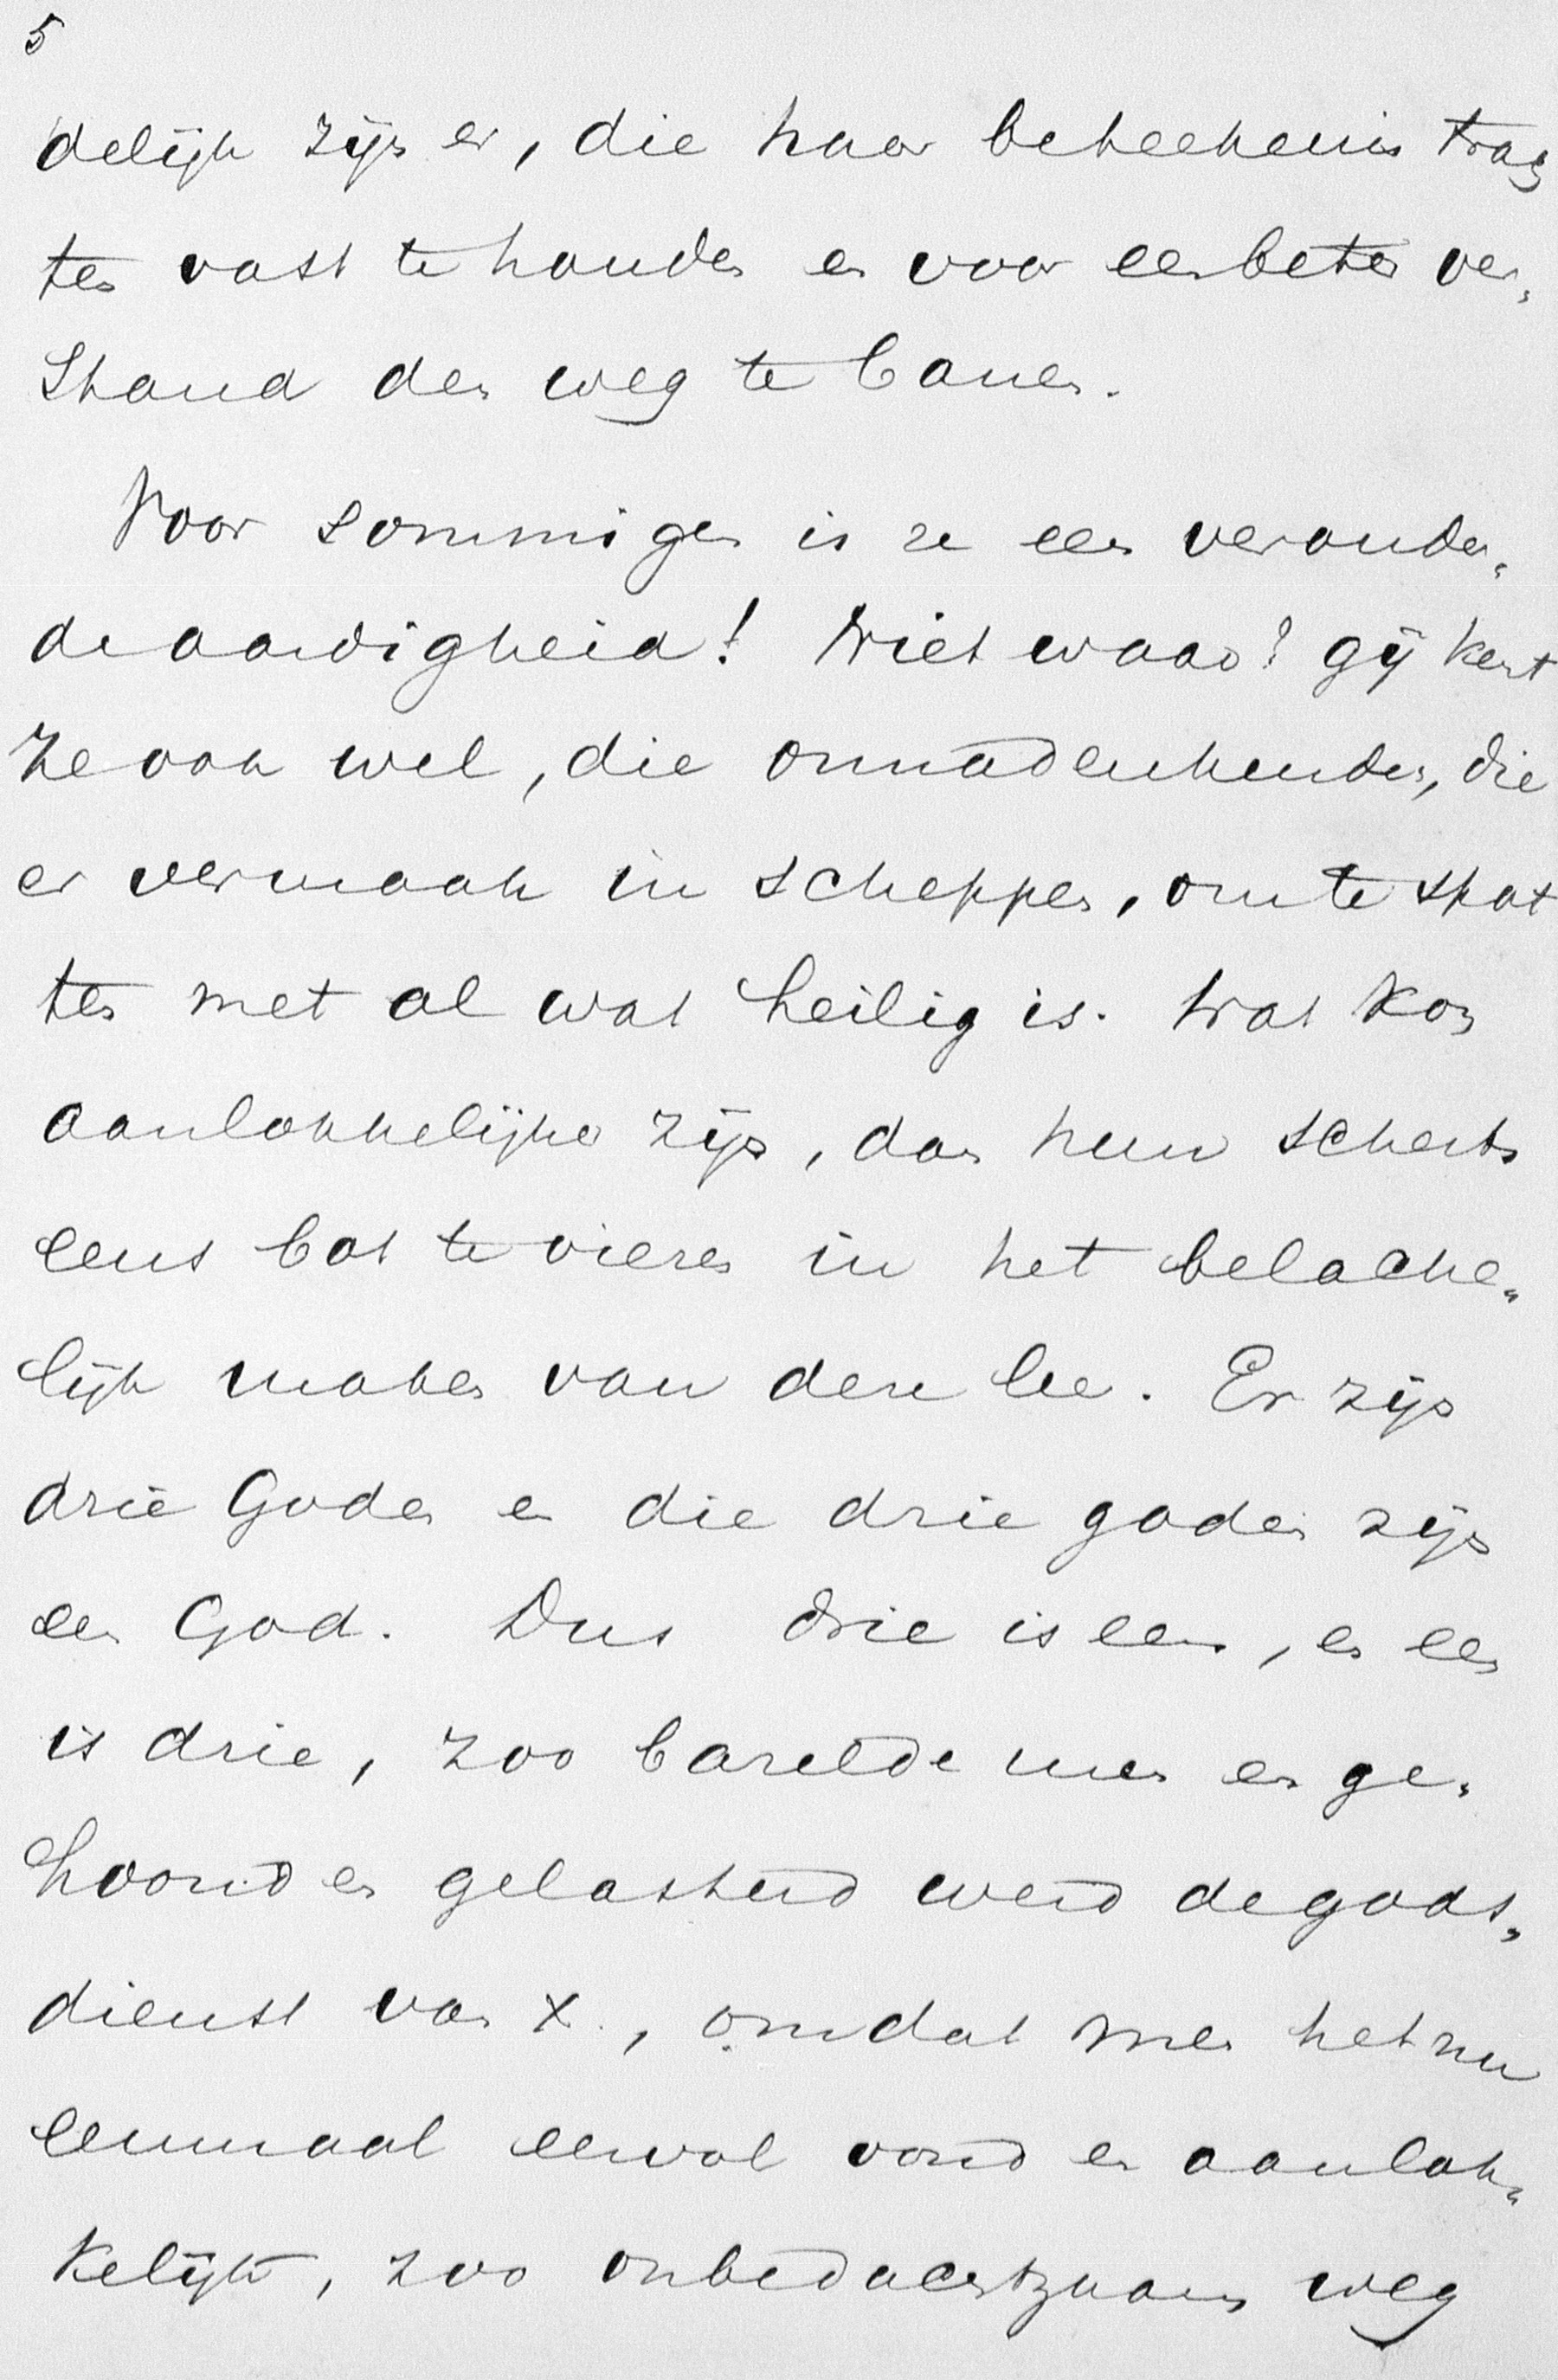 5
delijk zijn er, die haar beteekenis trag
ten vast te houden en voor een beter ver„
stand den weg te banen.
Voor sommigen is ze een verouder„
de aardigheid! Niet waar? gij kent
ze ook wel, die onnadenkenden, die
er vermaak in scheppen, om te spot
ten met al wat heilig is. Wat kon
aanlokkelijker zijn, dan hun scherts
eens bot te vieren in het belache„
lijk maken van deze lee. Er zijn
drie Goden en die drie goden zijn
een God. Dus drie is een, en een
is drie, zoo bazelde men en ge„
hoond en gelasterd werd de gods„
dienst van X., omdat men het nu
eenmaal eervol vond en aanlok„
kelijk, zoo onbedachtzaam weg